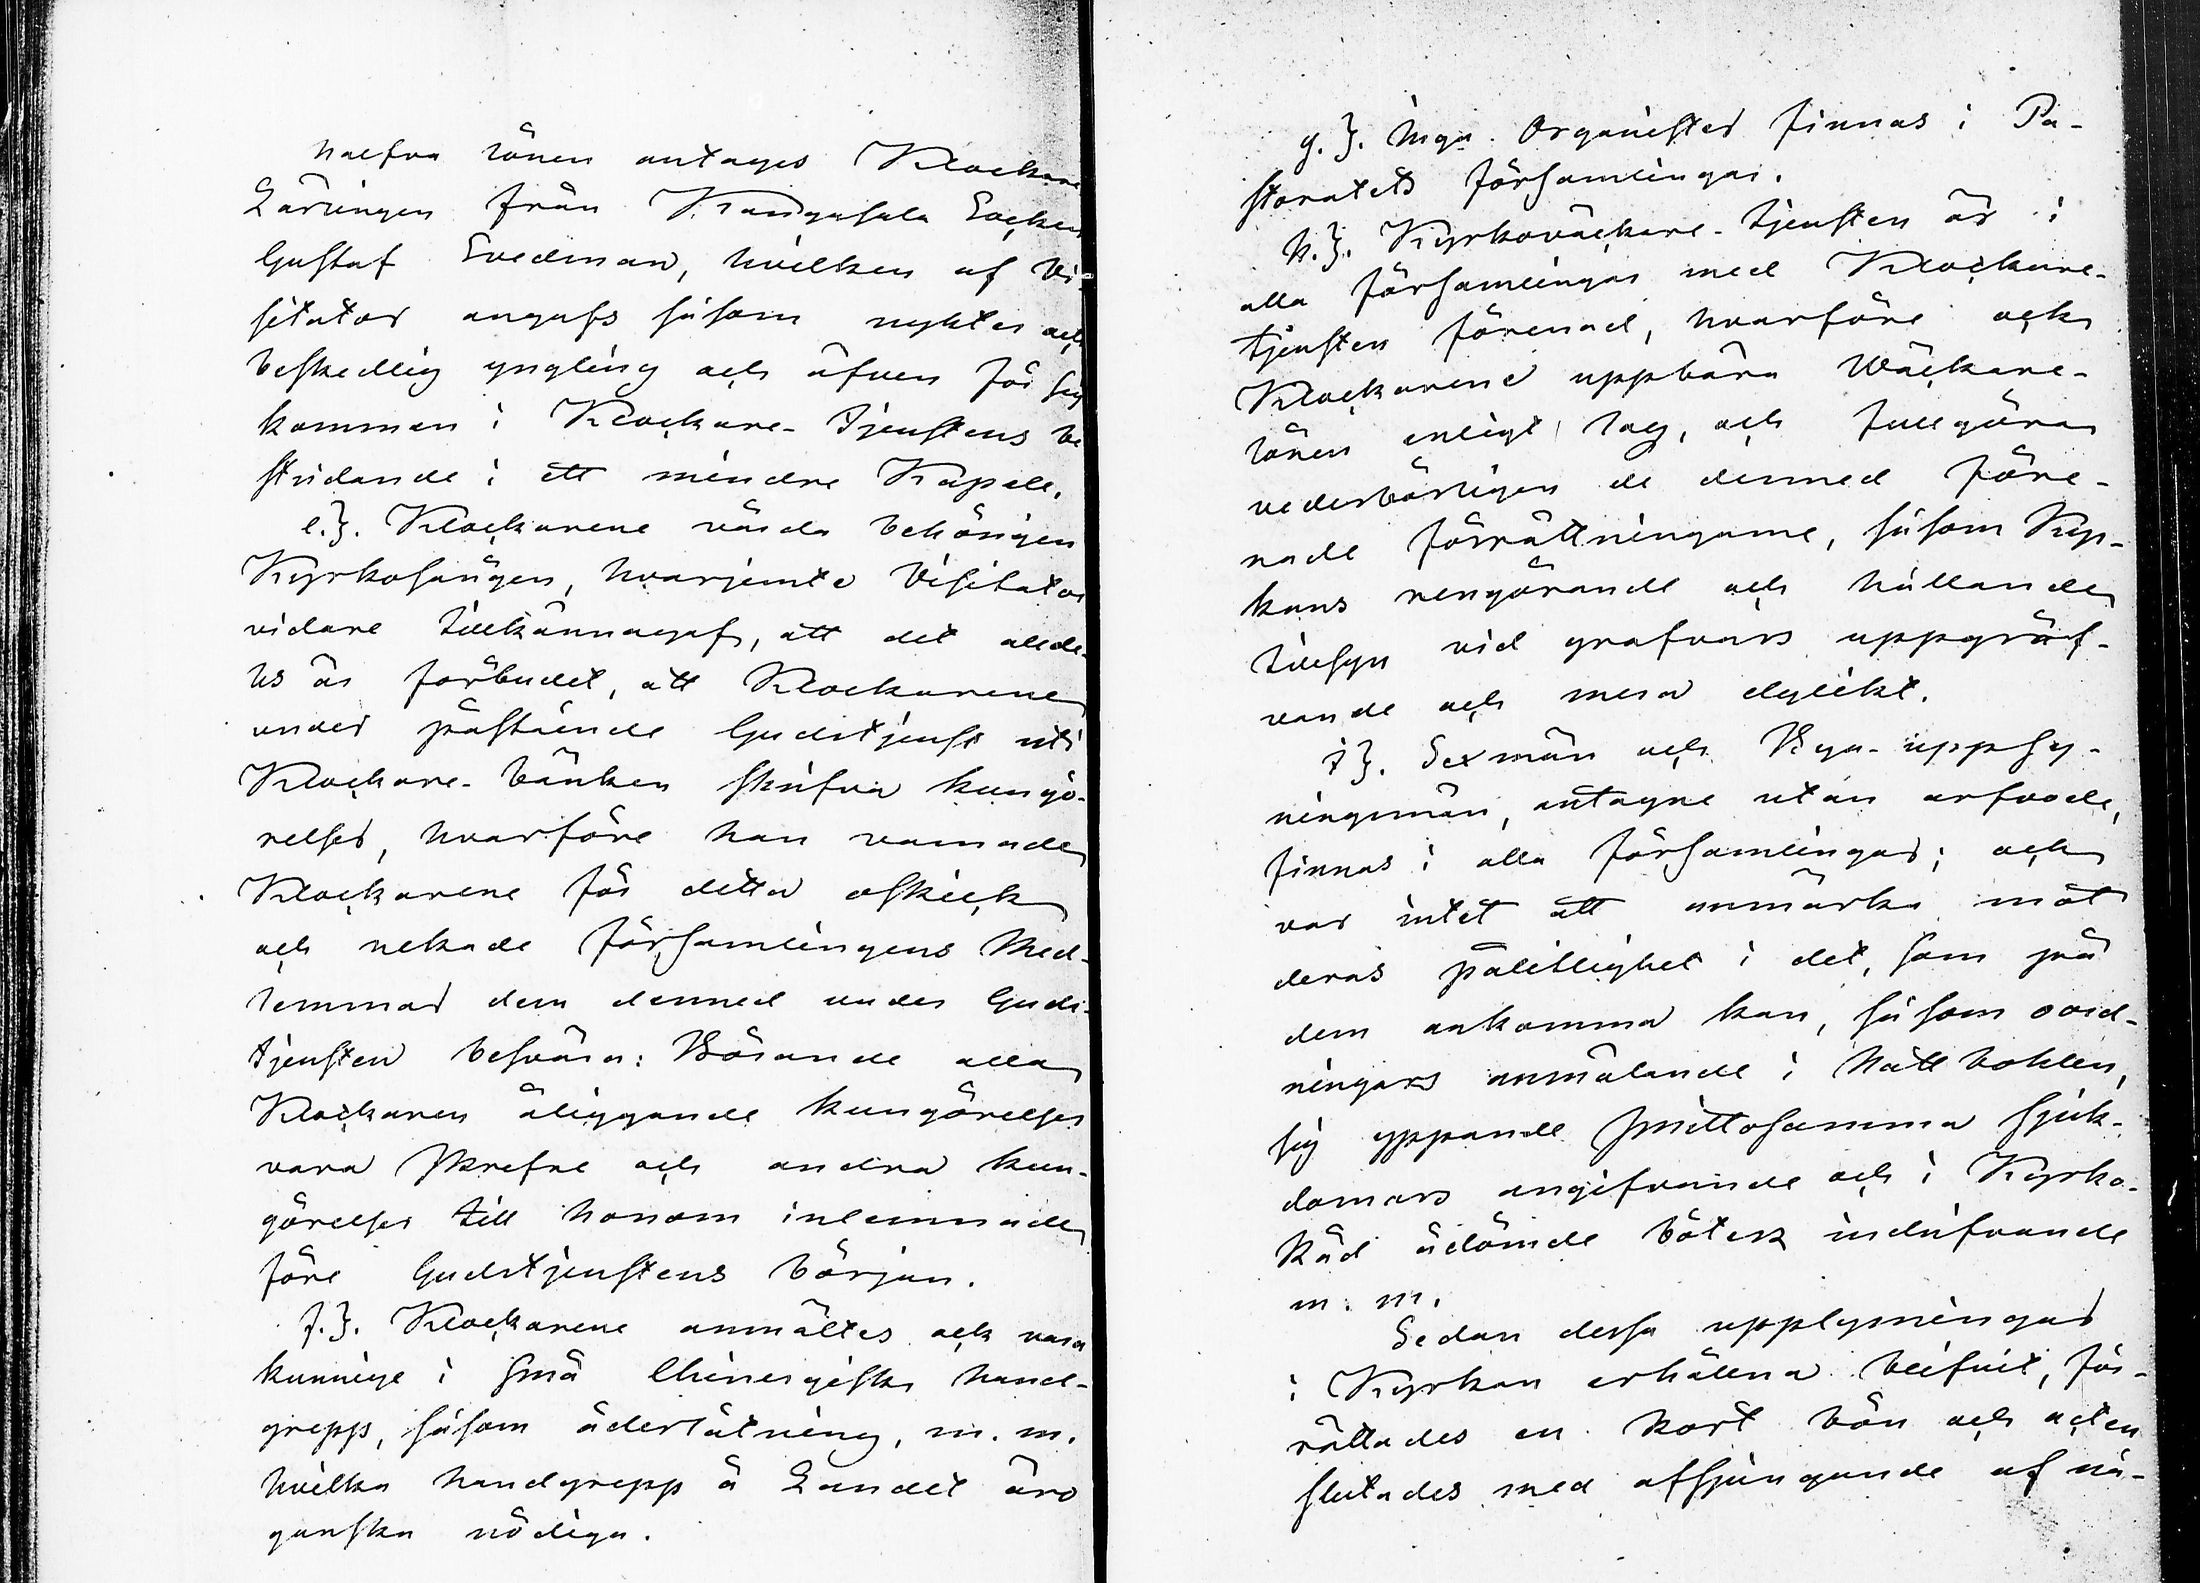 halfva lönen antages Klockare
Lärlingen från Kangasala Socken
Gustaf Svedman, hvilken af Vi-
sitator angafs såsom nykter och
beskedlig yngling och äfven för sig
kommen i Klockare-tjenstens be
stridande i ett mindre Kapell.
e.). Klockarene vårda behörigen
Kyrkosången, hvarjemte Visitator
vidare tillkännagaf, att det allde-
les är förbudet, att Klockarene
under påstående Gudstjenst uti
Klockare-bänken skrifva kungö-
relser, hvarföre han varnade
Klockarene för detta oskick
och nekade Församlingens Med-
lemmar dem dermed under Guds-
tjensten besvära: Börande alla
Klockaren åliggande kungörelser
vara skrefne och andra kun-
görelser till honom inlemnade
före Gudstjenstens början.
f.). Klockarene anmältes ock vara
kunnige i små Chirurgiska hand-
grepp, såsom åderlåtning, m. m.
hvilka handgrepp å Landet äro
ganska nödiga.
g.). Inga Organister finnas i Pa-
storatets församlingar.
h.). Kyrkoväckare-tjensten är i
alla församlingar med Klockare-
tjensten förenad, hvarföre ock
Klockarene uppbära Wäckare-
lönen enligt lag, och fullgöra
vederbörligen de dermed före-
nade förrättningarne, såsom Kyr-
kans rengörande och hållande
tillsyn vid grafvars uppgräf-
vande och mera dylikt.
i). Sexmän och Bya-uppsy-
ningsmän, antagne utan arfvode,
finnas i alla församlingar; och
var intet att anmärka mot
deras pålitlighet i det, som på
dem ankomma kan, såsom oord-
ningars anmälande i Nattbohlen,
sig yppande smittosamma sjuk-
domars angifvande och i Kyrko-
Råd ådömde böters indrifvande
m. m.
Sedan dessa upplysningar
i Kyrkan erhållna blifvit, för-
rättades en kort bön och acten
slutades med afsjungande af nå-